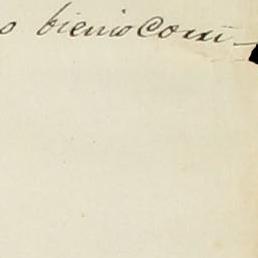 o bienio Com-